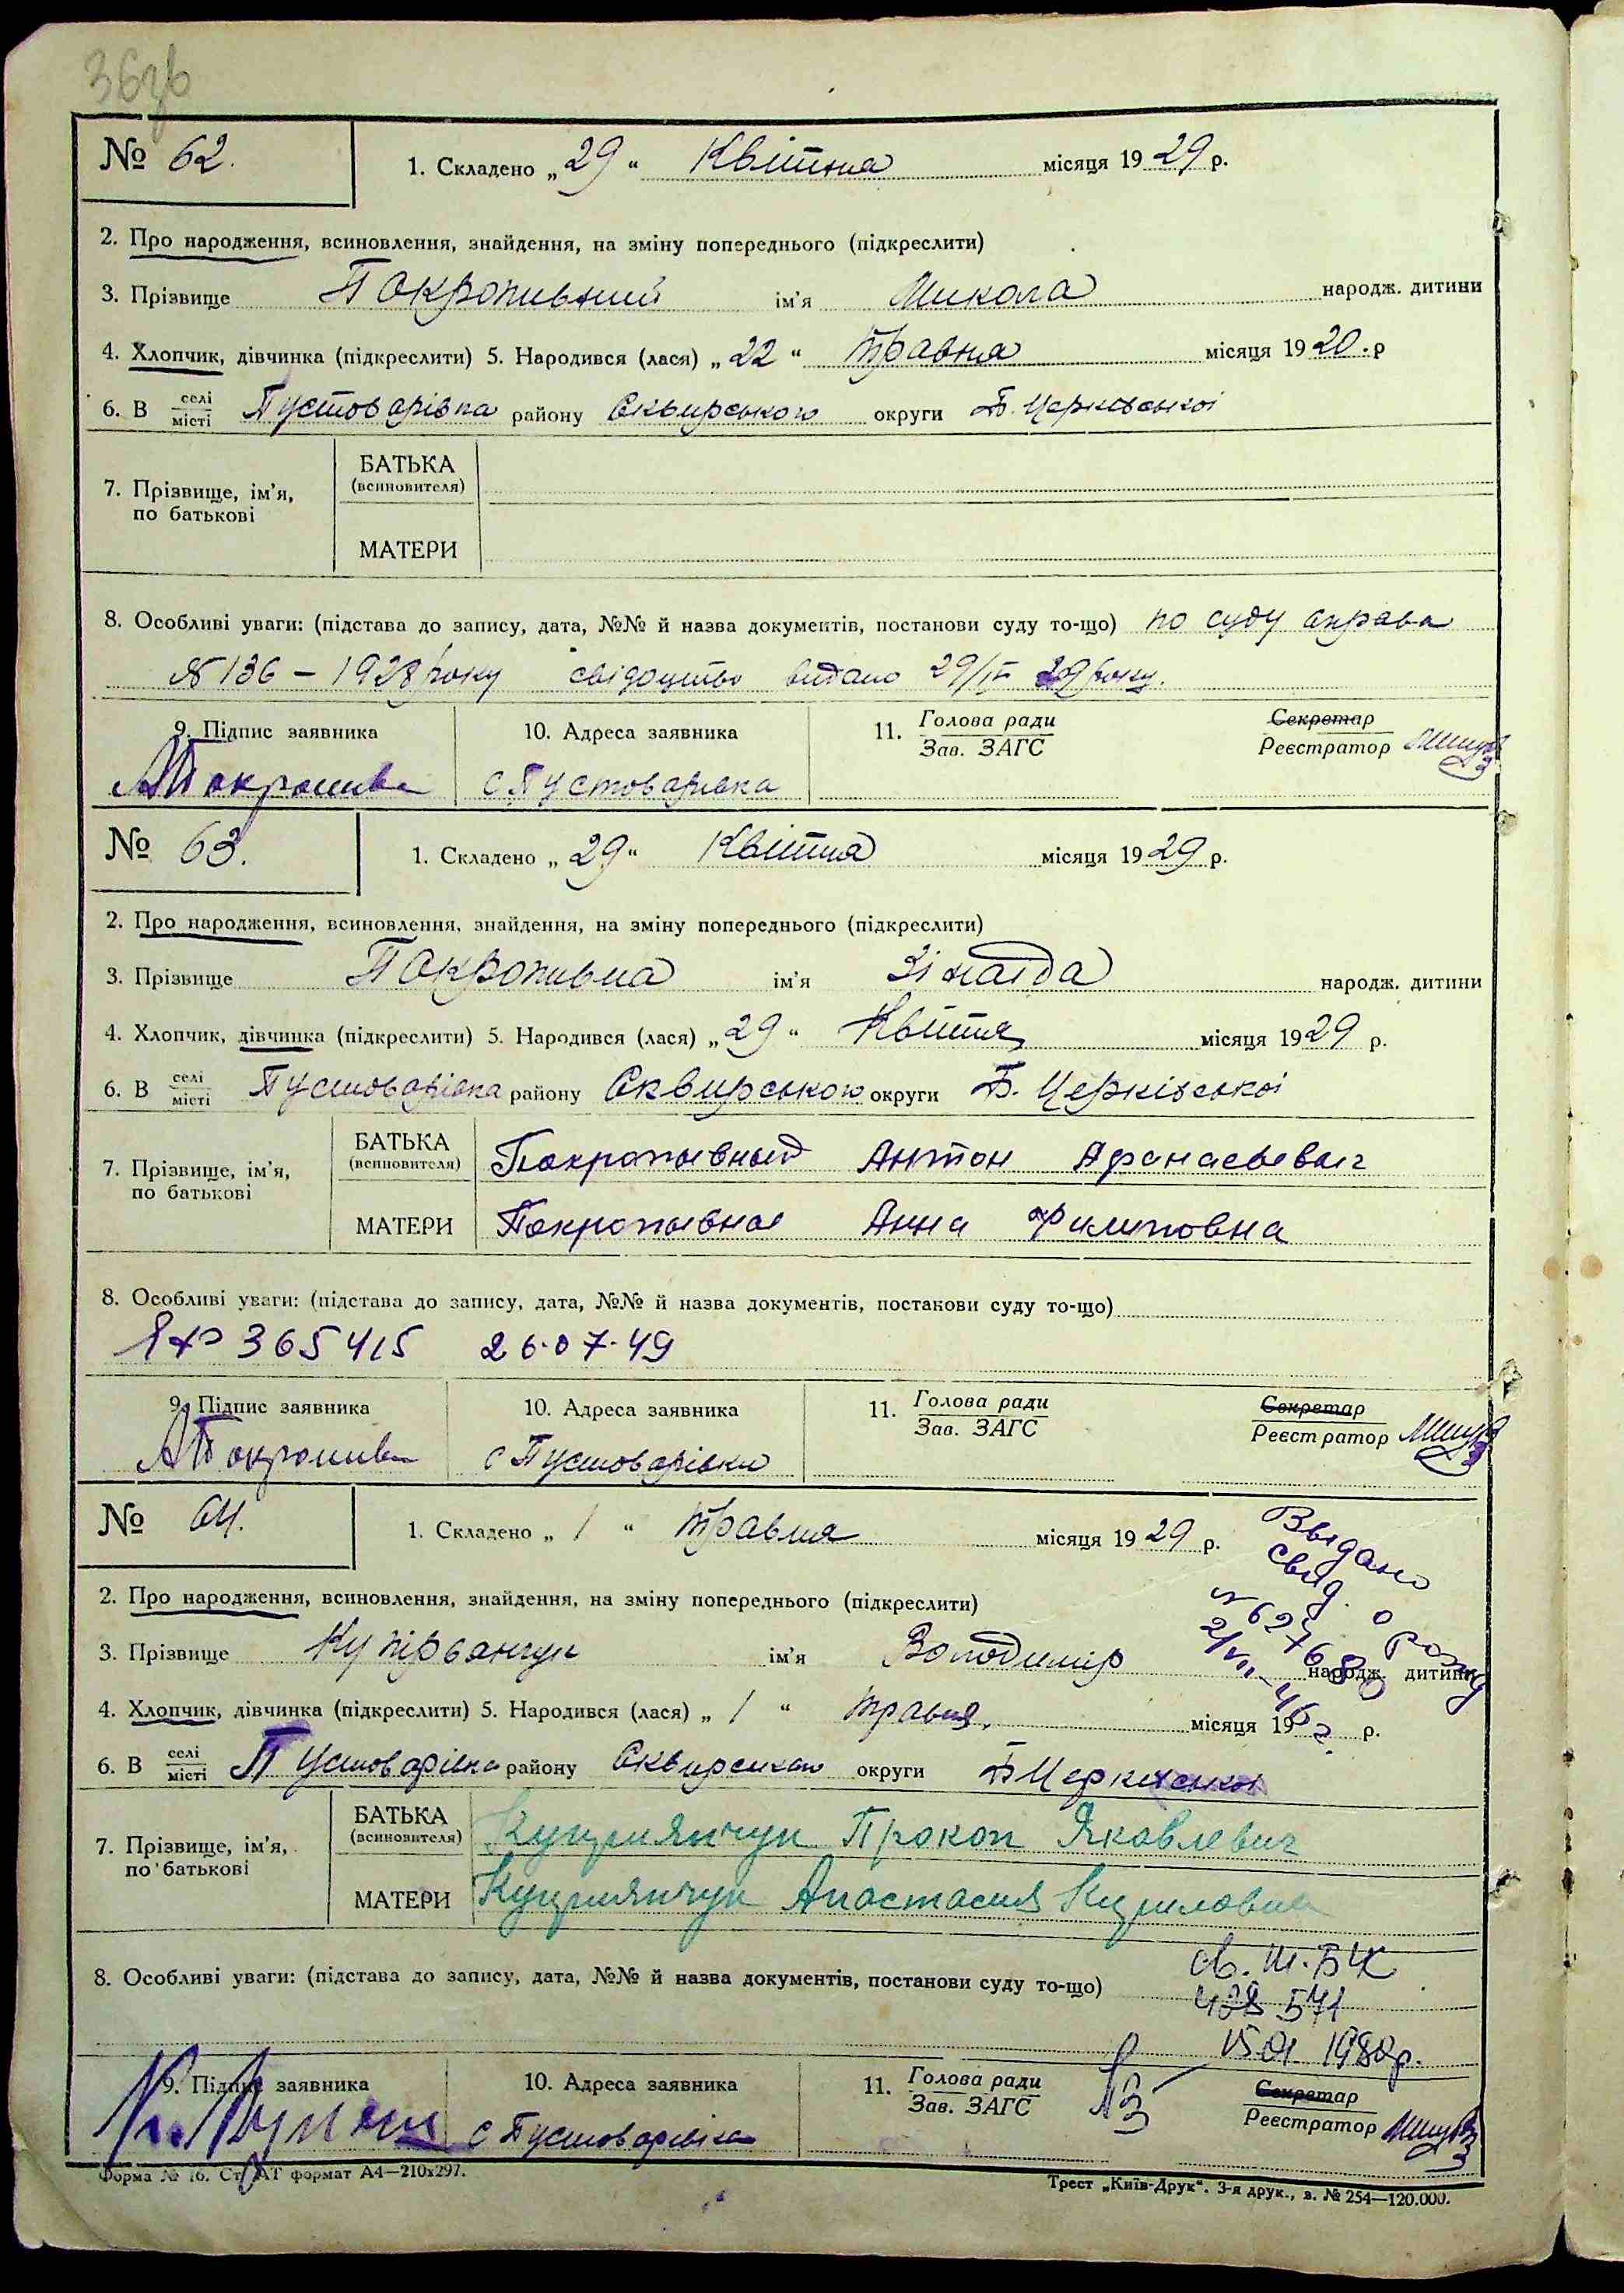 № 62. 1. Складено „29“ Квітня місяця 1929 р.
2. Про народження, всиновлення, знайдення, на зміну попереднього (підкреслити)
3. Прізвище Покропивний ім'я Микола народж. дитини
4. Хлопчик, дівчинка (підкреслити) 5. Народився (лася) „22“ травня місяця 1920 р
6. В селі місті Пустоварівка району Сквирського округи Б. Церківської
7. Прізвище, ім'я, по батькові
БАТЬКА (всиновителя)
МАТЕРИ
8. Особливі уваги: (підстава до запису, дата, №№ й назва документів, постанови суду то-що) по суду справа
№ 136 – 1928 року свідоцтво видано 29/IV 29 року.
9. Підпис заявника 10. Адреса заявника 11. Голова ради Зав. ЗАГС Секретар Реєстратор
с Пустоварівка
№ 63. 1. Складено „29“ Квітня місяця 1929 р.
2. Про народження, всиновлення, знайдення, на зміну попереднього (підкреслити)
3. Прізвище Покропивна ім'я Зінаїда народж. дитини
4. Хлопчик, дівчинка (підкреслити) 5. Народився (лася) „29“ Квітня місяця 1929 р.
6. В селі місті Пустоварівка району Сквирського округи Б. Церківської
7. Прізвище, ім'я, по батькові
БАТЬКА (всиновителя) Покропывный Антон Афанасьевыг
МАТЕРИ Покропывная Анна Филиповна
8. Особливі уваги: (підстава до запису, дата, №№ й назва документів, постанови суду то-що)
365415 26.07.49
9. Підпис заявника 10. Адреса заявника 11. Голова ради Зав. ЗАГС Секретар Реєстратор
с Пустоварівки
№ 64. 1. Складено „1“ травня місяця 1929 р.
Выдано
свид. о рожд
2. Про народження, всиновлення, знайдення, на зміну попереднього (підкреслити)
3. Прізвище ім'я Володимір народж. дитини
4. Хлопчик, дівчинка (підкреслити) 5. Народився (лася) „1“ травня. місяця 19 р.
6. В селі місті Пустоварівка району Сквирського округи Б Церківської
7. Прізвище, ім'я, по батькові
БАТЬКА (всиновителя) Куприянчук Прокоп Яковлевич
МАТЕРИ Куприянчук Анастасия Кириловна
8. Особливі уваги: (підстава до запису, дата, №№ й назва документів, постанови суду то-що)
571
1980р.
9. Підпис заявника 10. Адреса заявника 11. Голова ради Зав. ЗАГС Секретар Реєстратор
с Пустоварівка
Форма № 16. Ст АТ формат А4—210х297.
Трест „Київ-Друк“. 3-я друк., з. № 254—120.000.